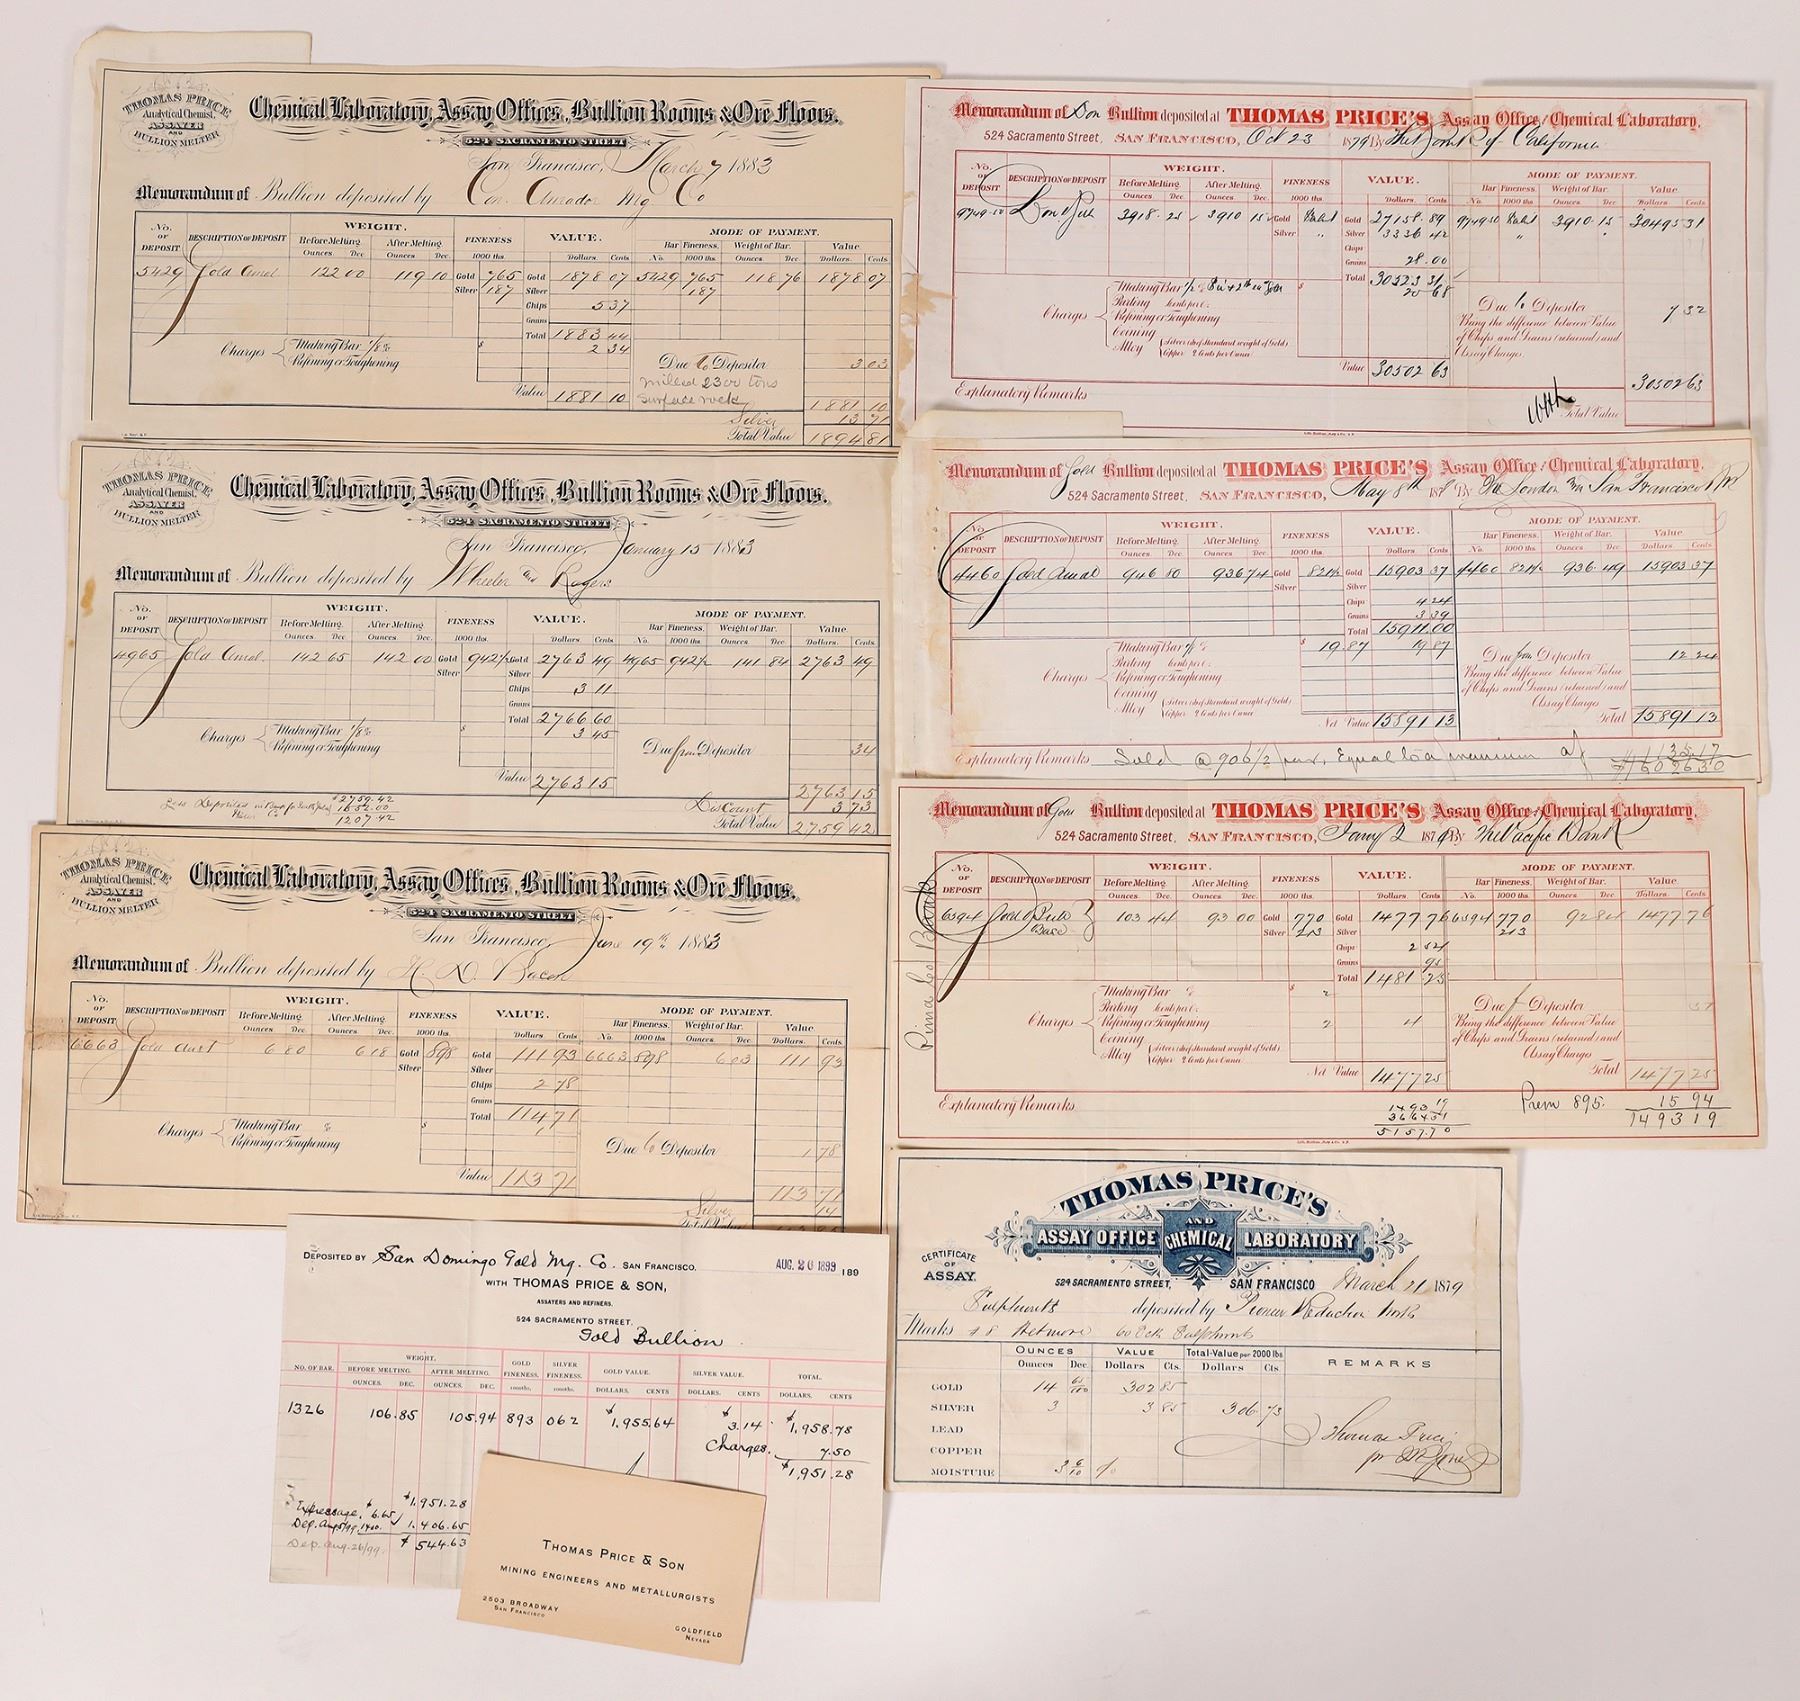 THOMAS PRICE
Analytical Chemist.
ASSAYER
AND
BULLION MELTER
Chemical Laboratory, Assay Offices, Bullion Rooms & Ore Floors.
524 SACRAMENTO STREET
San Francisco, March 7 1883
Memorandum of Bullion deposited by Con. Amador Mg Co
No. OF DEPOSIT DESCRIPTION OF DEPOSIT WEIGHT. FINENESS VALUE. MODE OF PAYMENT.
Before Melting. After Melting. 1000 ths. Bar Fineness. Weight of Bar. Value
Ounces Dec Ounces. Dec Dollars. Cents No. 1000 ths. Ounces. Dec Dollars. Cents
5429 Gold Amal 122 00 119 10 Gold 765 Gold 1878 07 5429 765 118 76 1878 07
Silver 187 Silver 187
Chips 5 37
Grains
Total 1883 44
Charges Making Bar 1/8 % $ 2 34
Refining or Toughening
Due to Depositor 3 03
milled 2300 tons
surface rock
Value 1881 10 1881 10
Silver 13 71
Total Value 1894 81
THOMAS PRICE
Analytical Chemist.
ASSAYER
AND
BULLION MELTER
Chemical Laboratory, Assay Offices, Bullion Rooms & Ore Floors.
524 SACRAMENTO STREET
San Francisco, January 15 1883
Memorandum of Bullion deposited by Wheeler and Rogers
No. OF DEPOSIT DESCRIPTION OF DEPOSIT WEIGHT. FINENESS VALUE. MODE OF PAYMENT.
Before Melting. After Melting. 1000 ths. Bar Fineness. Weight of Bar. Value
Ounces Dec. Ounces. Dec. Dollars. Cents No. 1000 ths. Ounces. Dec Dollars. Cents
4965 Gold Amal. 142 65 142 00 Gold 942 1/2 Gold 2763 49 4965 942 1/2 141 84 2763 49
Silver Silver
Chips 3 11
Grains
Total 2766 60
Charges Making Bar 1/8 % $ 3 45
Refining or Toughening
Due from Depositor 34
Value 2763 15 2763 15
Discount 3 73
Total Value 2759 42
$2759.42
1552.00
1207.42
THOMAS PRICE
Analytical Chemist.
ASSAYER
AND
BULLION MELTER
Chemical Laboratory, Assay Offices, Bullion Rooms & Ore Floors.
524 SACRAMENTO STREET
San Francisco, June 19th 1883
Memorandum of Bullion deposited by H. D. Bacon
No. OF DEPOSIT DESCRIPTION OF DEPOSIT WEIGHT. FINENESS VALUE. MODE OF PAYMENT.
Before Melting. After Melting. 1000 ths. Bar Fineness. Weight of Bar. Value
Ounces Dec. Ounces. Dec. Dollars Cents No. 1000 ths. Ounces. Dec. Dollars. Cents
6663 Gold Dust 6 80 6 18 Gold 898 Gold 111 93 6663 898 6 03 111 93
Silver Silver
Chips 2 78
Grains
Total 114 71
Charges Making Bar % $ 1
Refining or Toughening
Due to Depositor 1 78
Value 113 71 113 71
Silver 14
Total Value
DEPOSITED BY San Domingo Gold Mg. Co. SAN FRANCISCO. AUG. 26 1899 189
WITH THOMAS PRICE & SON,
ASSAYERS AND REFINERS.
524 SACRAMENTO STREET.
Gold Bullion
NO. OF BAR. WEIGHT. GOLD FINENESS. SILVER FINENESS. GOLD VALUE. SILVER VALUE. TOTAL.
BEFORE MELTING. AFTER MELTING.
OUNCES. DEC. OUNCES. DEC. 1000ths. 1000ths. DOLLARS. CENTS DOLLARS. CENTS DOLLARS. CENTS
1326 106.85 105.94 893 062 $1,955.64 $3.14 $1,958.78
Charges. 7.50
$1,951.28
$1,951.28
Expressage, $6.65
Dep. Aug 5/99 1400. 1,406.65
Dep. Aug. 26/99. $544.63
THOMAS PRICE & SON
MINING ENGINEERS AND METALLURGISTS
2503 BROADWAY
SAN FRANCISCO
GOLDFIELD
NEVADA
Memorandum of Don Bullion deposited at THOMAS PRICE'S Assay Office & Chemical Laboratory,
524 Sacramento Street, SAN FRANCISCO, Oct 23 1879 By The Bank of California
No. OF DEPOSIT DESCRIPTION OF DEPOSIT WEIGHT. FINENESS VALUE. MODE OF PAYMENT.
Before Melting. After Melting. 1000 ths. Bar Fineness. Weight of Bar. Value
Ounces. Dec. Ounces. Dec. Dollars. Cents No. 1000 ths. Ounces. Dec. Dollars Cents
9749-50 3918.25 3910 15 Gold Gold 27158 89 9749 50 3910.15 30495 31
Silver " Silver 3336 42 "
Chips
Grains 28.00
Total 30523 31
Charges Making Bar 20 68
Parting cents per oz.
Refining or Toughening
Coining
Alloy Silver (Std standard weight of Gold) Copper 2 Cents per Ounce
Due to Depositor 7 32
Being the difference between Value of Chips and Grains (retained) and Assay Charges.
Value 30502 63 30502 63
Explanatory Remarks
Total Value
Memorandum of Gold Bullion deposited at THOMAS PRICE'S Assay Office & Chemical Laboratory,
524 Sacramento Street, SAN FRANCISCO, May 8th 1878 By The London & San Francisco Bk
No. OF DEPOSIT DESCRIPTION OF DEPOSIT WEIGHT. FINENESS VALUE. MODE OF PAYMENT.
Before Melting. After Melting. 1000 ths. Bar Fineness. Weight of Bar. Value
Ounces. Dec. Ounces. Dec. Dollars. Cents No. 1000 ths. Ounces. Dec. Dollars. Cents
4460 Gold Amal 946 80 936 74 Gold 821 1/2 Gold 15903 37 4460 821 1/2 936.49 15903 37
Silver Silver
Chips 4 24
Grains 3 39
Total 15911.00
Charges Making Bar 1/8 % $ 19 87 19 87
Parting cents per oz.
Refining or Toughening
Coining
Alloy Silver (Std standard weight of Gold) Copper 2 Cents per Ounce
Due from Depositor 12 24
Being the difference between Value of Chips and Grains (retained) and Assay Charges
Net Value 15891 13 Total 15891 13
Explanatory Remarks Sold @ 906 1/2 par, Equal to a premium of $ 135.17
$16026 30
Memorandum of Gold Bullion deposited at THOMAS PRICE'S Assay Office & Chemical Laboratory,
524 Sacramento Street, SAN FRANCISCO, Jany 2 1879 By The Pacific Bank
No. OF DEPOSIT DESCRIPTION OF DEPOSIT WEIGHT. FINENESS VALUE. MODE OF PAYMENT.
Before Melting. After Melting. 1000 ths. Bar Fineness. Weight of Bar. Value
Ounces. Dec. Ounces. Dec. Dollars. Cents No. 1000 ths. Ounces. Dec. Dollars. Cents
6394 Gold Base 103 44 93 00 Gold 770 Gold 1477 76 6394 770 92 84 1477 76
Silver 213 Silver 213
Chips 2 54
Grains 95
Total 1481 25
Charges Making Bar % $ 2
Parting cents per oz.
Refining or Toughening 2 4
Coining
Alloy Silver (Std standard weight of Gold) Copper 2 Cents per Ounce
Due f Depositor 51
Being the difference between Value of Chips and Grains (retained) and Assay Charges
Net Value 1477 25 Total 1477 25
Explanatory Remarks
1493 19
3664 51
5157.70
Prem 895. 15 94
1493 19
Pima Co Bank
THOMAS PRICE'S
ASSAY OFFICE AND CHEMICAL LABORATORY
CERTIFICATE OF ASSAY.
524 SACRAMENTO STREET, SAN FRANCISCO March 21 1879
Sulphurets deposited by Pioneer Reduction Works
Marks Sulphurets
OUNCES VALUE Total-Value per 2000 lbs. REMARKS
Ounces Dec. Dollars Cts. Dollars Cts.
GOLD 14 65/100 302 85
SILVER 3 3 85 306 73
LEAD
COPPER
MOISTURE 3 6/10 %
Thomas Price